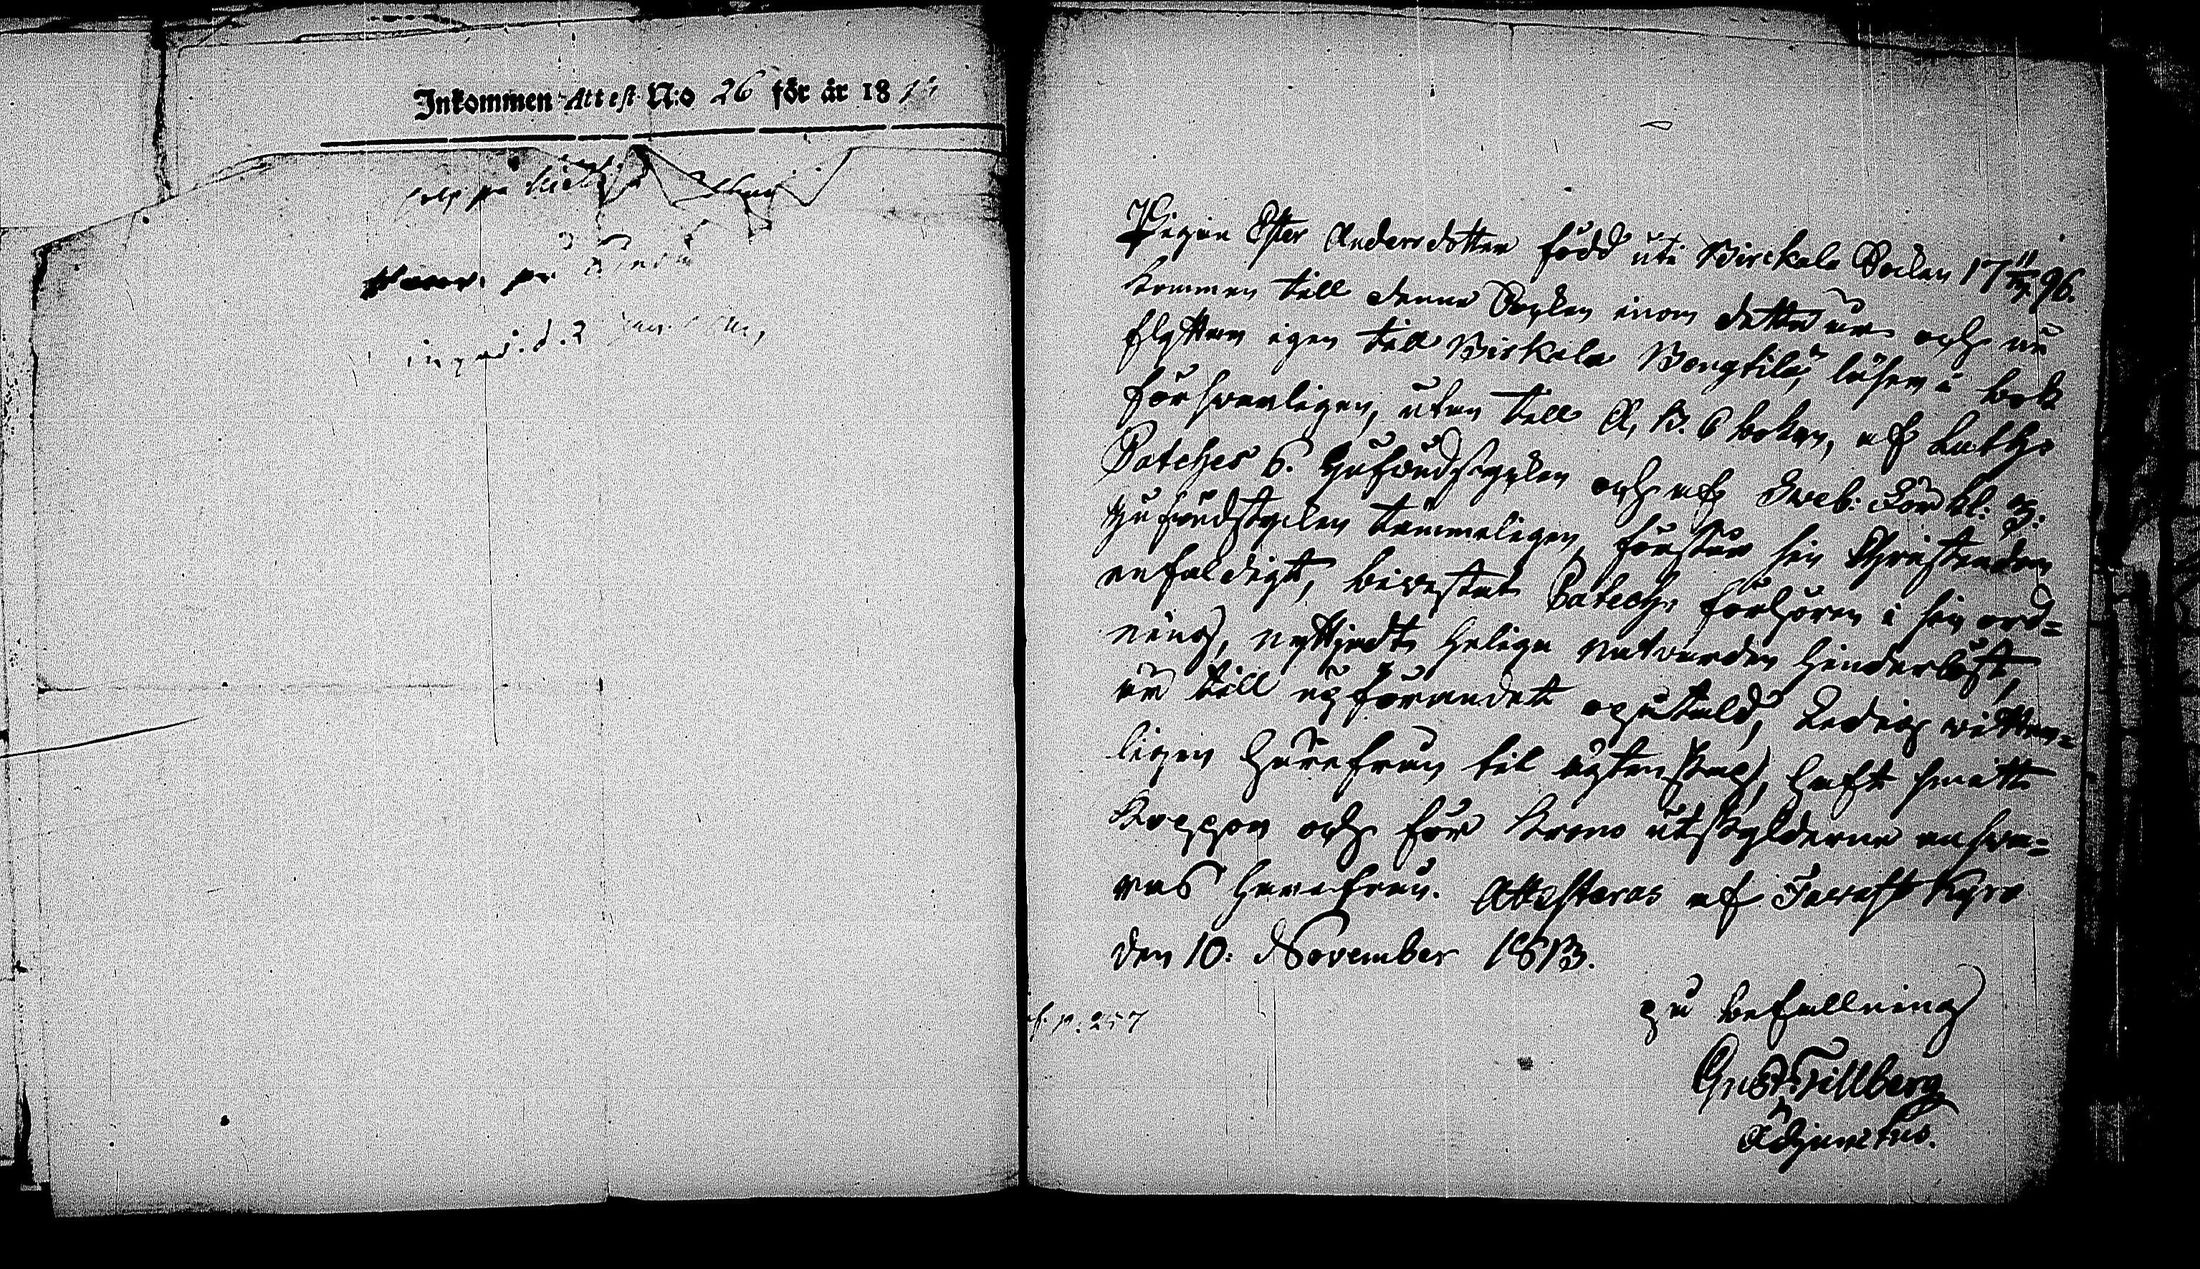 Inkommen Attest N:o 26 för år 18
Pigan Ester Andersdotter född uti Birckala Socken 17 11/7 96.
kommen till denne Socken inom detta år och nu
flyttar igen till Birkala Wongtila, läser i bok
försvarligen, utan till A, B. C boken, af Luth:
Catches 6. Hufvudstycken och af Sveb: Förkl: 3:
Hufvudstycken temmeligen, förstår sin Christendom
enfaldigt, bivistat Catech: förhören i sin ord=
ning, nyttjadt heliga nattvarden hinderlöst,
är till uppförandet otadeld, Ledig vetter=
ligen härifrån til ägtenskap, haft smitt
koppor och för krono utskylderne ansva=
ras härifrån. Attesteras af Tavast Kyro
den 10: November 1813.
på befallning
Gust Tillberg
Adjunctus.
p. 257